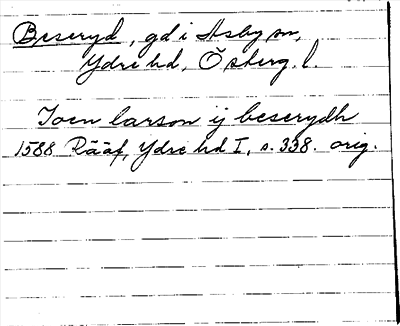 Beseryd, gd i Asby sn,
Ydre hd, Österg. l.
Joen larson ij beserydh
1588 Rääf, Ydre hd I, s. 338. orig.